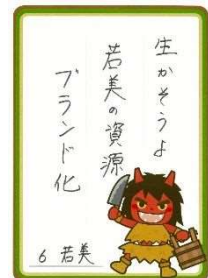 生かそうよ
若美の資源
ブランド化
6 若美